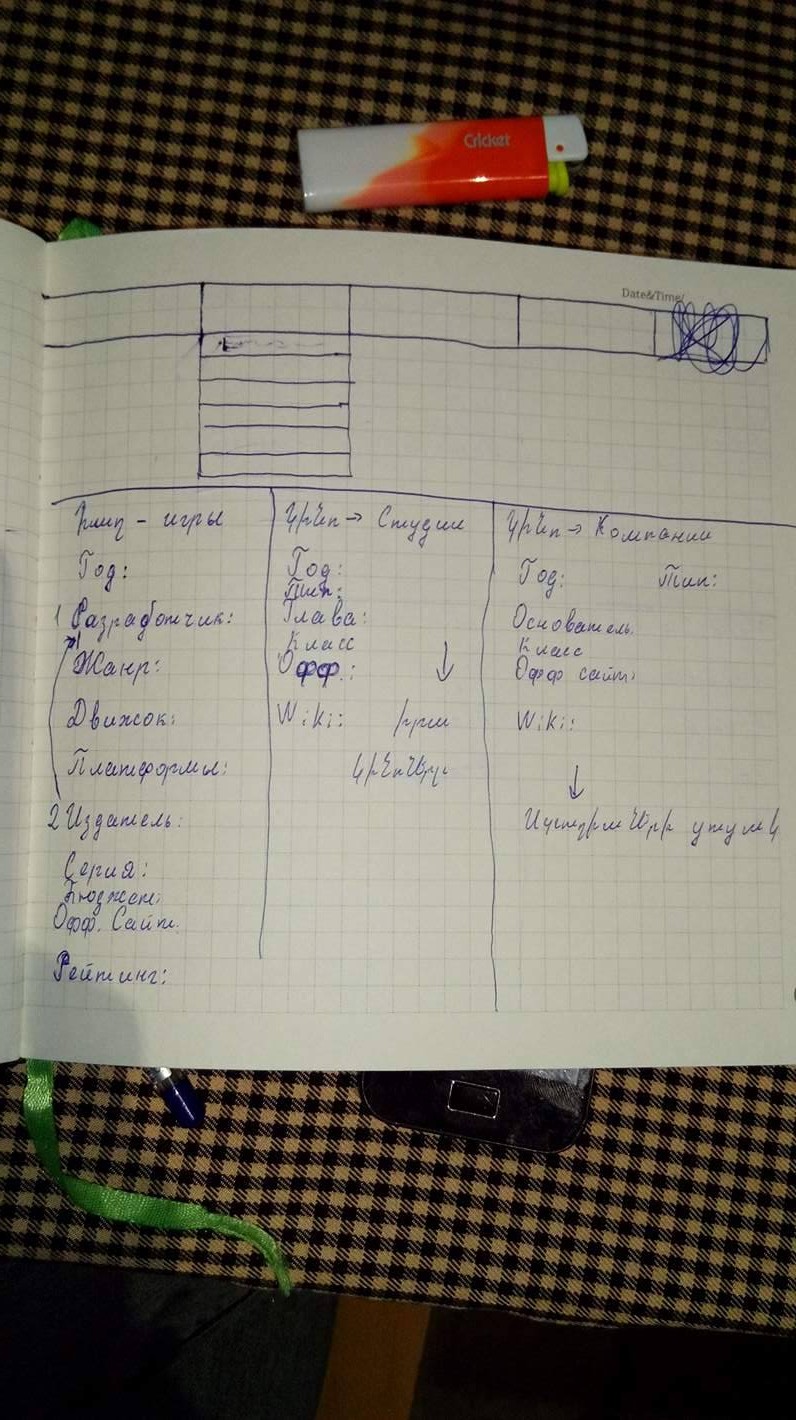 Cricket
Date&Time/
- игры
Год:
1 Разработчик:
Жанр:
Движок:
Платформы:
2 Издатель:
Серия:
Бюджет:
Офф. Сайт.
Рейтинг:
→ Студии
Год:
Тип:
Глава:
Класс
Офф.:
Wiki:
→ Компании
Год: Тип:
Основатель.
Класс
Офф сайт:
Wiki: